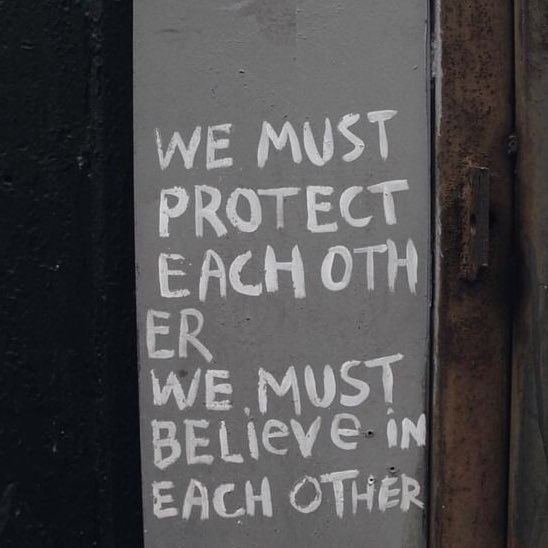 WE MUST
PROTECT
EACH OTH
ER
WE MUST
BELieVe iN
EACH OTHER